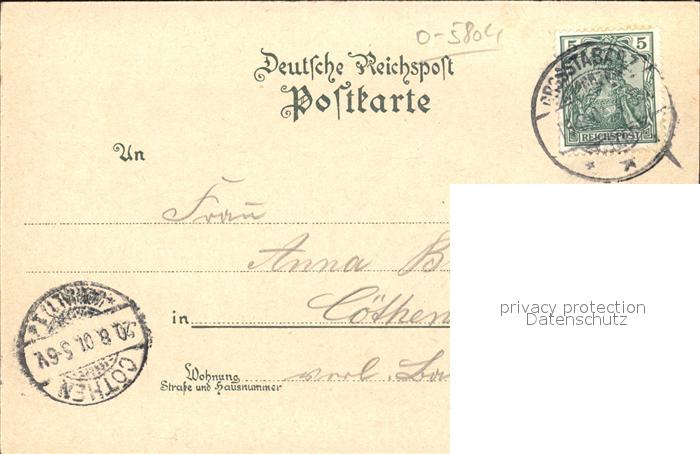 O-5804
5 5
Deutsche Reichspost
Postkarte
REICHSPOST
An
Frau
Anna B
in Cöthen
Wohnung
Straße und Hausnummer
verl.
20.8.01. 5-6V.
CÖTHEN
privacy protection
Datenschutz